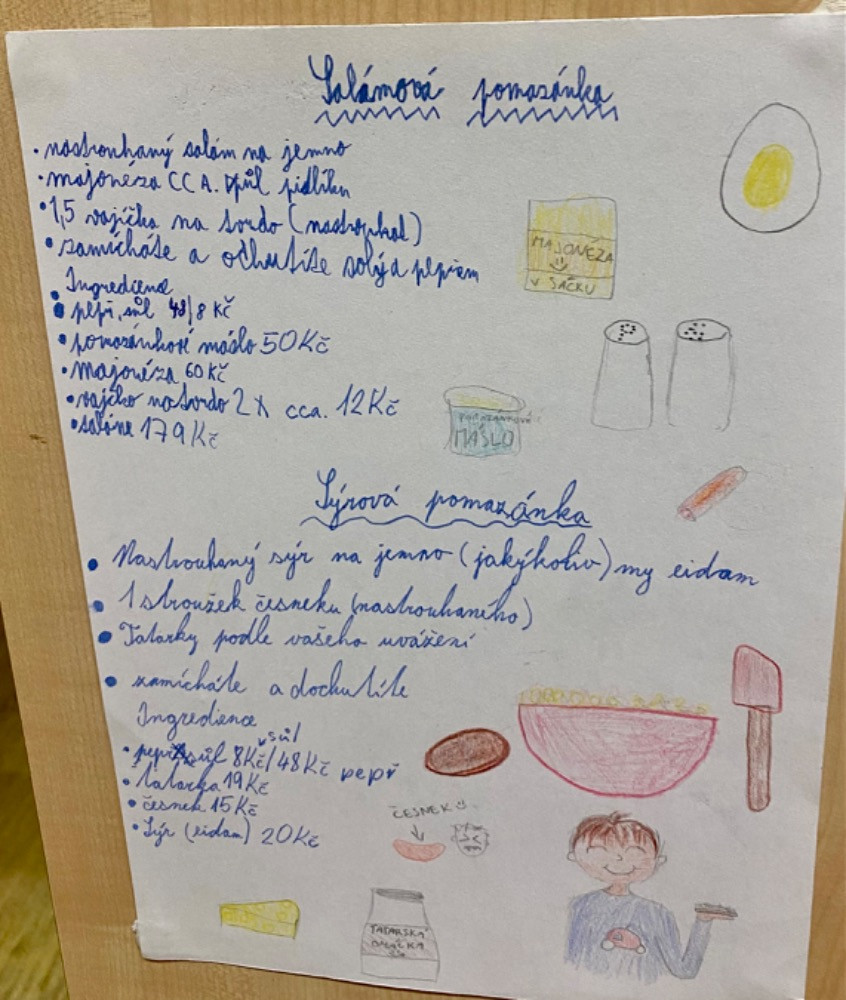 Salámová pomazánka
• nastrouhaný salám na jemno
• majonéza CCA. půl pidlíku
• 1,5 vajíčka na tvrdo (nastrouhat)
• zamícháte a ochutíte solý a pepřem
• Ingredience
• pepř, sůl 48/8 Kč
• pomazánkové máslo 50Kč
• majonéza 60 Kč
• vajíčko natvrdo 2x cca. 12Kč
• saláme 179Kč
MAJONÉZA
V SÁČKU
P
POMAZÁNKOVÉ
MÁSLO
Sýrová pomazánka
• Nastrouhaný sýr na jemno (jakýkoliv) my eidam
• 1 stroužek česneku (nastrouhaného)
• Tatarky podle vašeho uvážení
• zamícháte a dochutíte
Ingredience
sůl
• sůl 8Kč/48Kč pepř
• tatarka 19Kč
• česnek 15Kč
• Sýr (eidam) 20Kč
ČESNEK
TATARSKÁ
OMÁČKA